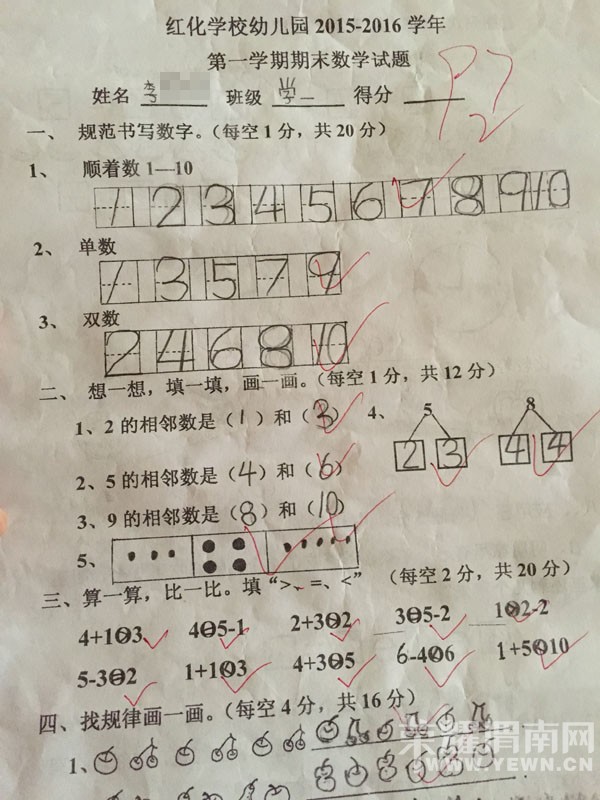 红化学校幼儿园 2015-2016 学年
第一学期期末数学试题
姓名 李 班级 学一 得分
一、 规范书写数字。(每空 1 分，共 20 分)
1、 顺着数 1—10
1 2 3 4 5 6 7 8 9 10
2、 单数
1 3 5 7 9
3、 双数
2 4 6 8 10
二、 想一想，填一填，画一画。(每空 1 分，共 12 分)
1、2 的相邻数是（1）和（3） 4、 5 8
2 3 4 4
2、5 的相邻数是（4）和（6）
3、9 的相邻数是（8）和（10）
5、
三、算一算，比一比。填“>、=、<” (每空 2 分，共 20 分)
4+1>3 4=5-1 2+3>2 3=5-2 1>2-2
5-3=2 1+1<3 4+3>5 6-4<6 1+5<10
四、找规律画一画。(每空 4 分，共 16 分)
1、
荣耀渭南网
WWW.YEWN.CN